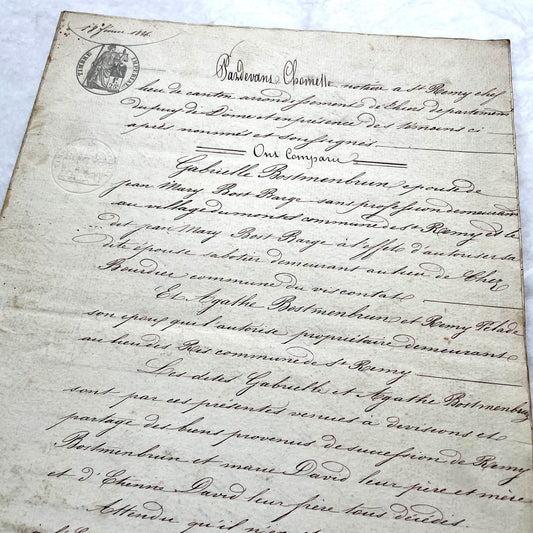 18 février 1866
TIMBRE IMPERIAL
Pardevant Chomette notaire à St Remy chef
lieu de canton arrondissement de Thiers departement
du puy de Dome et en présence des témoins ci
après nommés et soussignés.
Ont Comparu
Gabrielle Bostmenbrun épouse de
par Mary Bost Barge sans profession demeurant
au village du monts commune de St Remy et le
dit par Mary Bost Barge à l'effet d'autoriser sa
dite épouse sabotier demeurant au lieu de Chez
Bourdier commune du viscontat.
Et Agathe Bostmenbrun et Remy Pelade
son époux qui l'autorise propriétaire demeurant
au lieu des Ris commune de St Remy
Les dites Gabrielle et Agathe Bostmenbrun
sont par ces présentes venues à divisions et
partage des biens provenus de succession de Remy
Bostmenbrun et marie David leur père et mère
et d'Etienne David leur frère tous décédés.
Attendu qu'il n'